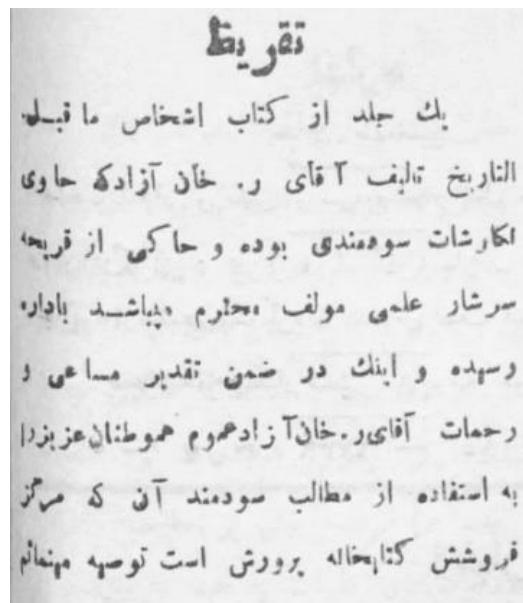 تقریظ
یك جلد از كتاب اشخاص ما قبل
التاریخ تالیف آقای ر. خان آزادكه حاوی
نگارشات سودمندی بوده و حاكی از قریحه
سرشار علمی مولف محترم میباشد باداره
رسیده و اینك در ضمن تقدیر مساعی و
زحمات آقای ر.خان آزاد عموم هموطنان عزیز را
به استفاده از مطالب سودمند آن كه مركز
فروشش كتابخانه پرورش است توصیه مینمائیم